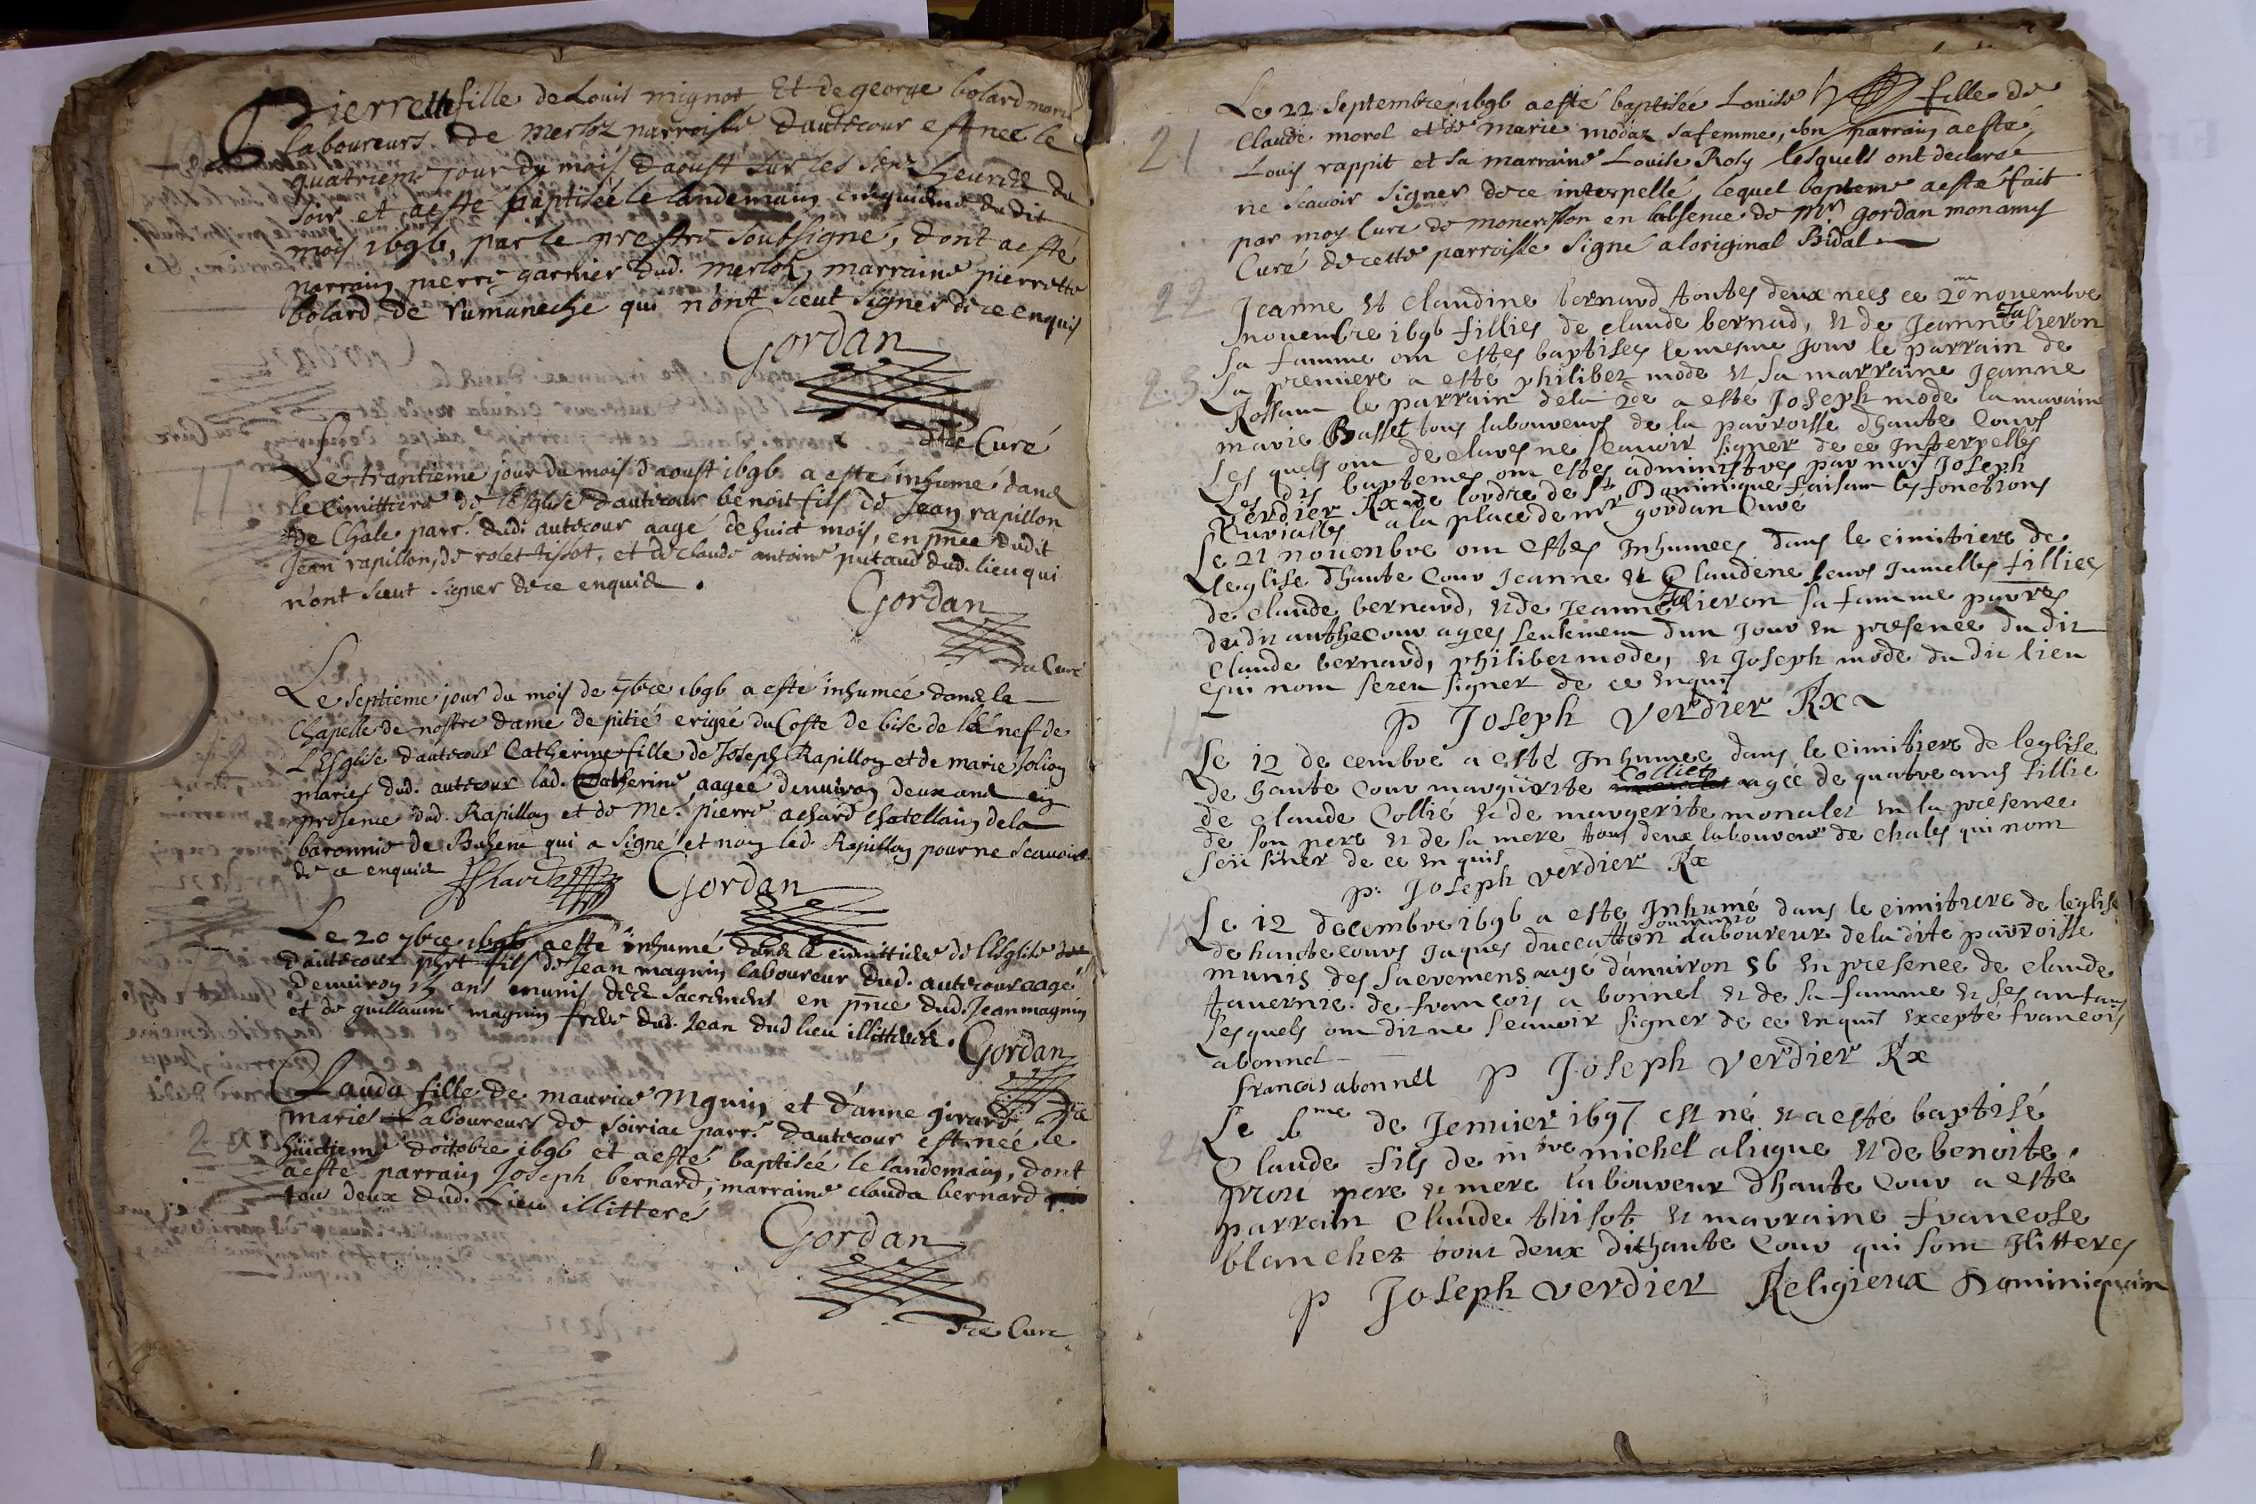 Pierrette fille de Louis mignot Et de george bolard mariés
laboureurs de merloz parroisse dautecour est née le
quatrieme jour du mois d'aoust sur les sept heures du
soir et a esté baptisée le landemain cinquieme dudit
mois 1696, par le prestre soubsigné, dont a esté
parrain pierre garnier dud. merloz, marraine pierrette
bolard de rumaneche qui n'ont sceut signer de ce enquis
Gordan
dre Curé
Le trantieme jour du mois d'aoust 1696 a esté inhumé dans
le cimittiere de l'esglise d'autecour benoit fils de Jean rapillon
de Chale parr. dud. autecour aagé de huict mois, en pnce dudit
Jean rapillon, de rolet tissot, et de claude antoine putaud dud. lieu qui
n'ont sceut signer de ce enquis.
Gordan
Curé
Le Septieme jour du mois de 7bre 1696 a esté inhumée dans la
Chapelle de nostre dame de pitié erigée du Costé de bise de la nef de
L'Esglise d'autecour Catherine fille de Joseph Rapillon et de marie Jolion
mariés dud. autecour lad. Catherine aagée d'enuiron deux ans en
présence dud. Rapillon et de Me. pierre achard chatellain de la
baronnie de Buhenc qui a signé et non led. Rapillon pour ne scauoir
de ce enquis Gordan
Le 20 7bre 1696 a esté inhumé dans le cimittiere de l'Esglise
dautecour phrt fils de Jean magnin laboureur dud. autecour aagé
denuiron 13 ans munis des Sacrements en pnce dud. Jean magnin
et de guillaume magnin frere dud. Jean dud lieu illitteré.
Gordan
Clauda fille de maurice Mgnin et d'anne girard
mariés Laboureurs de Soiriac parr. dautecour est née le
huictieme d'octobre 1696 et a esté baptisée le landemain, dont
a esté parrain Joseph bernard, marraine clauda bernard
tous deux dud. Lieu illitterés
Gordan
dre Curé
Le 22 Septembre 1696 a esté baptisée Louise fille de
21 Claude morel et de marie modaz sa femme, son parrain a esté
Louis rappit et sa marraine Louise Rosy lesquels ont declaré
ne scauoir signer de ce interpellé, lequel bapteme a esté fait
par moy Curé de moncrosson en labsence de Mr. gordan mon amy
Curé de cette parroisse Signé a loriginal Bidal
22 Jeanne et claudine bernard toutes deux nees ce 20me nouembre
nouembre 1696 fillies de claude bernad, et de Jeanne Talieron
sa famme om estes baptisees le mesme jour le parrain de
23 la premiere a esté philibez mode et sa marraine Jeanne
Rossam le parrain de la 2de a este Joseph mode la maraine
marie Basset tous laboureurs de la parroisse dhaute Cours
les quels om declares ne scauoir signer de ce Interpelles
Les dis baptemes om estes administres par moy Joseph
Verdier Rx de lordre de St Dominique faisam les fonctions
Curialles a la place de mr gordan Curé
Le 21 nouenbre om estes Inhumees dans le cimitiere de
leglise dhaute Cour Jeanne et Claudene seurs Jumelles fillies
de claude bernard, et de Jeanne Talieron sa famme parres
du dit authecour agees seulemem dun jour en presence du dit
claude bernard, philibez mode, et Joseph mode du dit lieu
qui nom seren signer de ce enquis
p Joseph Verdier Rx
Le 12 decembre a esté Inhumee dans le cimitiere de leglise
de haute Cour marguerite Colliet agée de quatre ams fillie
de claude Collié et de margerite monalet en la presence
de son pere et de sa mere tous deux laboureur de chales qui nom
seu siner de ce enquis
p. Joseph Verdier Rx
Le 12 decembre 1696 a esté Inhumé dans le cimitiere de leglise
de haute cours Jaques duccatton laboureur de la dite parroisse
munis des sacremens agé d'anuiron 56 en presence de claude
tauernie. de francois a bonnel et de sa famme et ses anfans
lesquels om dit ne scauoir signer de ce enquis excepte francois
abonnel
francois abonnel p Joseph Verdier Rx
Le me de Jenuier 1697 est né et a esté baptisé
24 Claude fils de michel alugue et de benoite
pere et mere laboureur dhaute Cour a este
parrain Claude thisot et marraine francose
blanchet tout deux dithaute Cour qui som Jlitteres
p Joseph Verdier Religieux Dominiquain